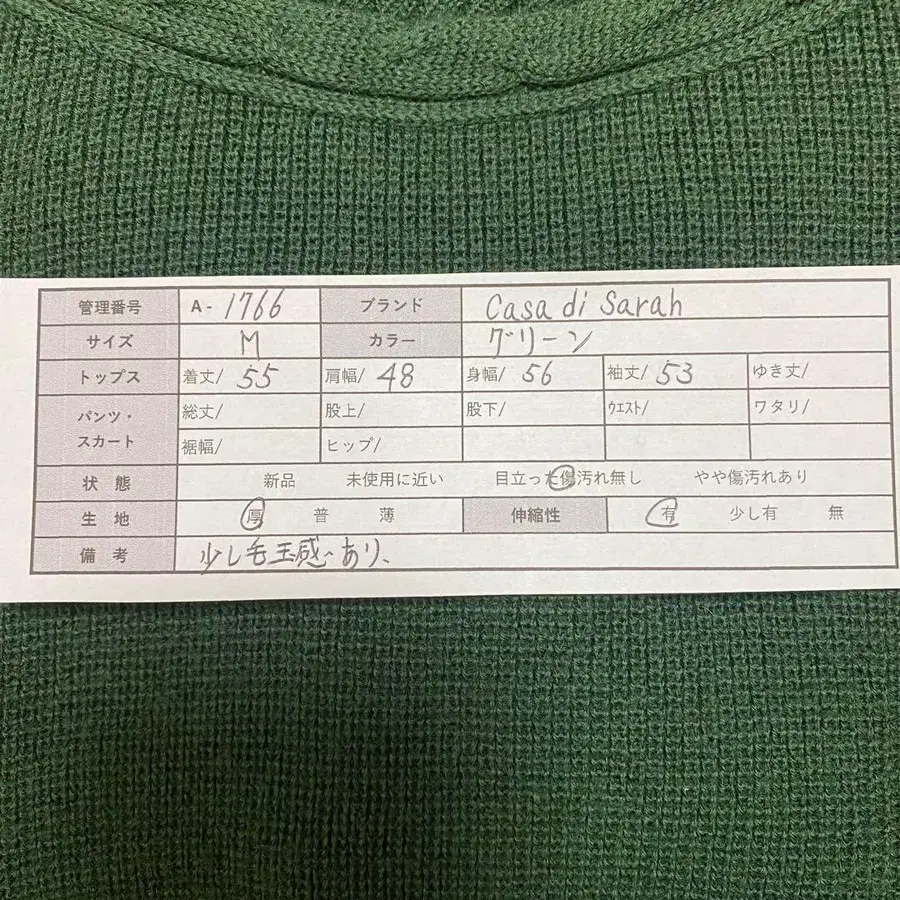 管理番号 A- 1766 ブランド Casa di Sarah
サイズ M カラー グリーン
トップス 着丈/ 55 肩幅/ 48 身幅/ 56 袖丈/ 53 ゆき丈/
パンツ・スカート 総丈/ 股上/ 股下/ ウエスト/ ワタリ/
裾幅/ ヒップ/
状態 新品 未使用に近い 目立った傷汚れ無し やや傷汚れあり
生地 厚 普 薄 伸縮性 有 少し有 無
備考 少し毛玉感あり、